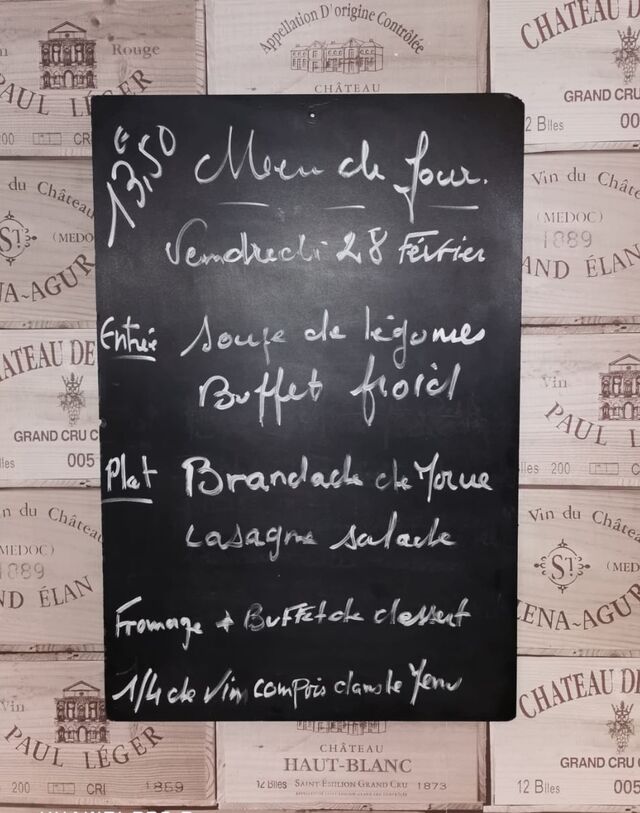 Rouge
PAUL LÉGER
Appellation D'origine Contrôlée
CHÂTEAU
CHATEAU D
GRAND CRU
2 Blles 00
du Château
ST
(MEDO
NA~AGUR
Vin du Châtea
(MEDOC)
1889
AND ÉLAN
ATEAU DE
GRAND CRU C
lles 005
Vin
PAUL L
lles 200 C
n du Château
MEDOC)
1889
ND ÉLAN
Vin du Châtea
ST
(MED
ENA~AGUR
Vin
PAUL LÉGER
200 CRI 1869
CHÂTEAU
HAUT-BLANC
12 Blles SAINT-ÉMILION GRAND CRU 1873
CHATEAU DE
GRAND CRU C
12 Blles 005
€
13,50
Menu du Jour.
Vendredi 28 Février
Entrée Soupe de légumes
Buffet froid
Plat Brandade de Morue
Lasagne salade
Fromage + Buffet de dessert
1/4 de Vin compris dans le Menu